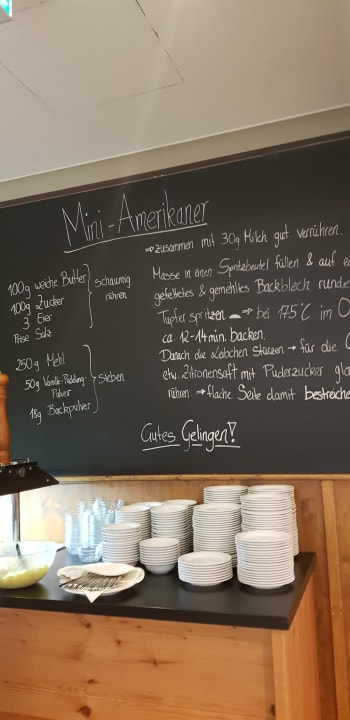 Mini-Amerikaner
100g weiche Butter
100g Zucker
3 Eier
Prise Salz
schaumig
rühren
250g Mehl
50g Vanille-Pudding-
Pulver
18g Backpulver
Sieben
⇒ zusammen mit 30g Milch gut verrühren.
Masse in einen Spritzbeutel füllen & auf
gefettetes & gemehltes Backblech runde
Tupfer spritzen → bei 175°C im
ca. 12-14min. backen.
Danach die Lebchen stürzen → für die
etw. Zitronensaft mit Puderzucker
rühren. → flache Seite damit bestreiche
Gutes Gelingen!